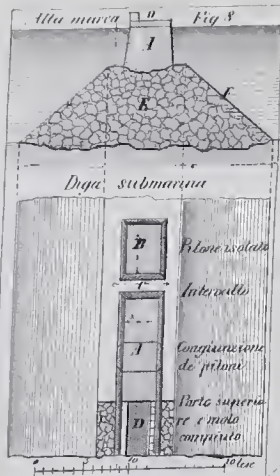 Alta marca D Fig 8
A
E
K
Diga submarina
B Pilone isolato
Intervallo
A Congiunzione
de piloni
Parte superio
D re e molo
compiuto
0 10